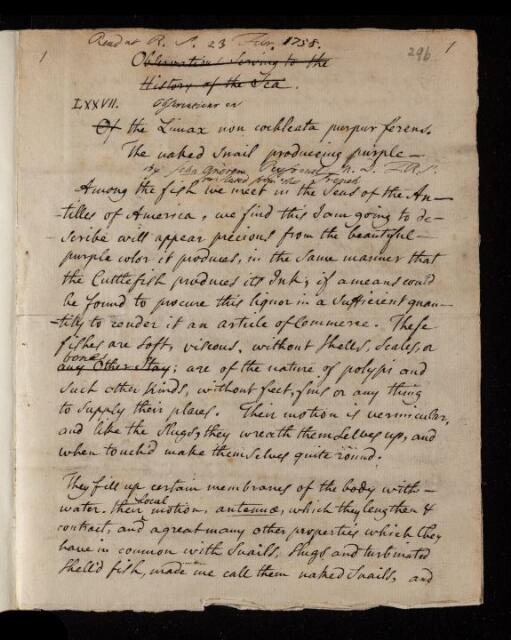 Read at R. S. 23 Febr. 1758.
1
296
1
Observations Serving to the
History of the Sea.
LXXVII. Observations on
Of the Limax non cochleata purpur ferens.
The naked Snail producing purple—
by John Andrew Peyssonel M. D. F.R.S.
translated from the French
Among the fish we meet in the Seas of the An-
tilles of America, we find this I am going to de-
scribe will appear precious from the beautiful
purple color it produces, in the same manner that
the Cuttlefish produces its Ink; if a means could
be found to procure this liquor in a sufficient quan-
tity to render it an article of Commerce. These
fishes are Soft, viscous, without Shells, Scales, or
bones
any Other Stay; are of the nature of polypi and
such other kinds, without feet, fins or any thing
to supply their places. Their motion is vermicular,
and like the Slugs, they wreath themselves up, and
when touch'd make themselves quite round.
They fill up certain membranes of the body with—
Local
water. their motion, antennæ, which they lengthen &
contract, and a great many other properties which they
have in common with Snails, Slugs and turbinated
Shell'd fish, made me call them naked Snails, and